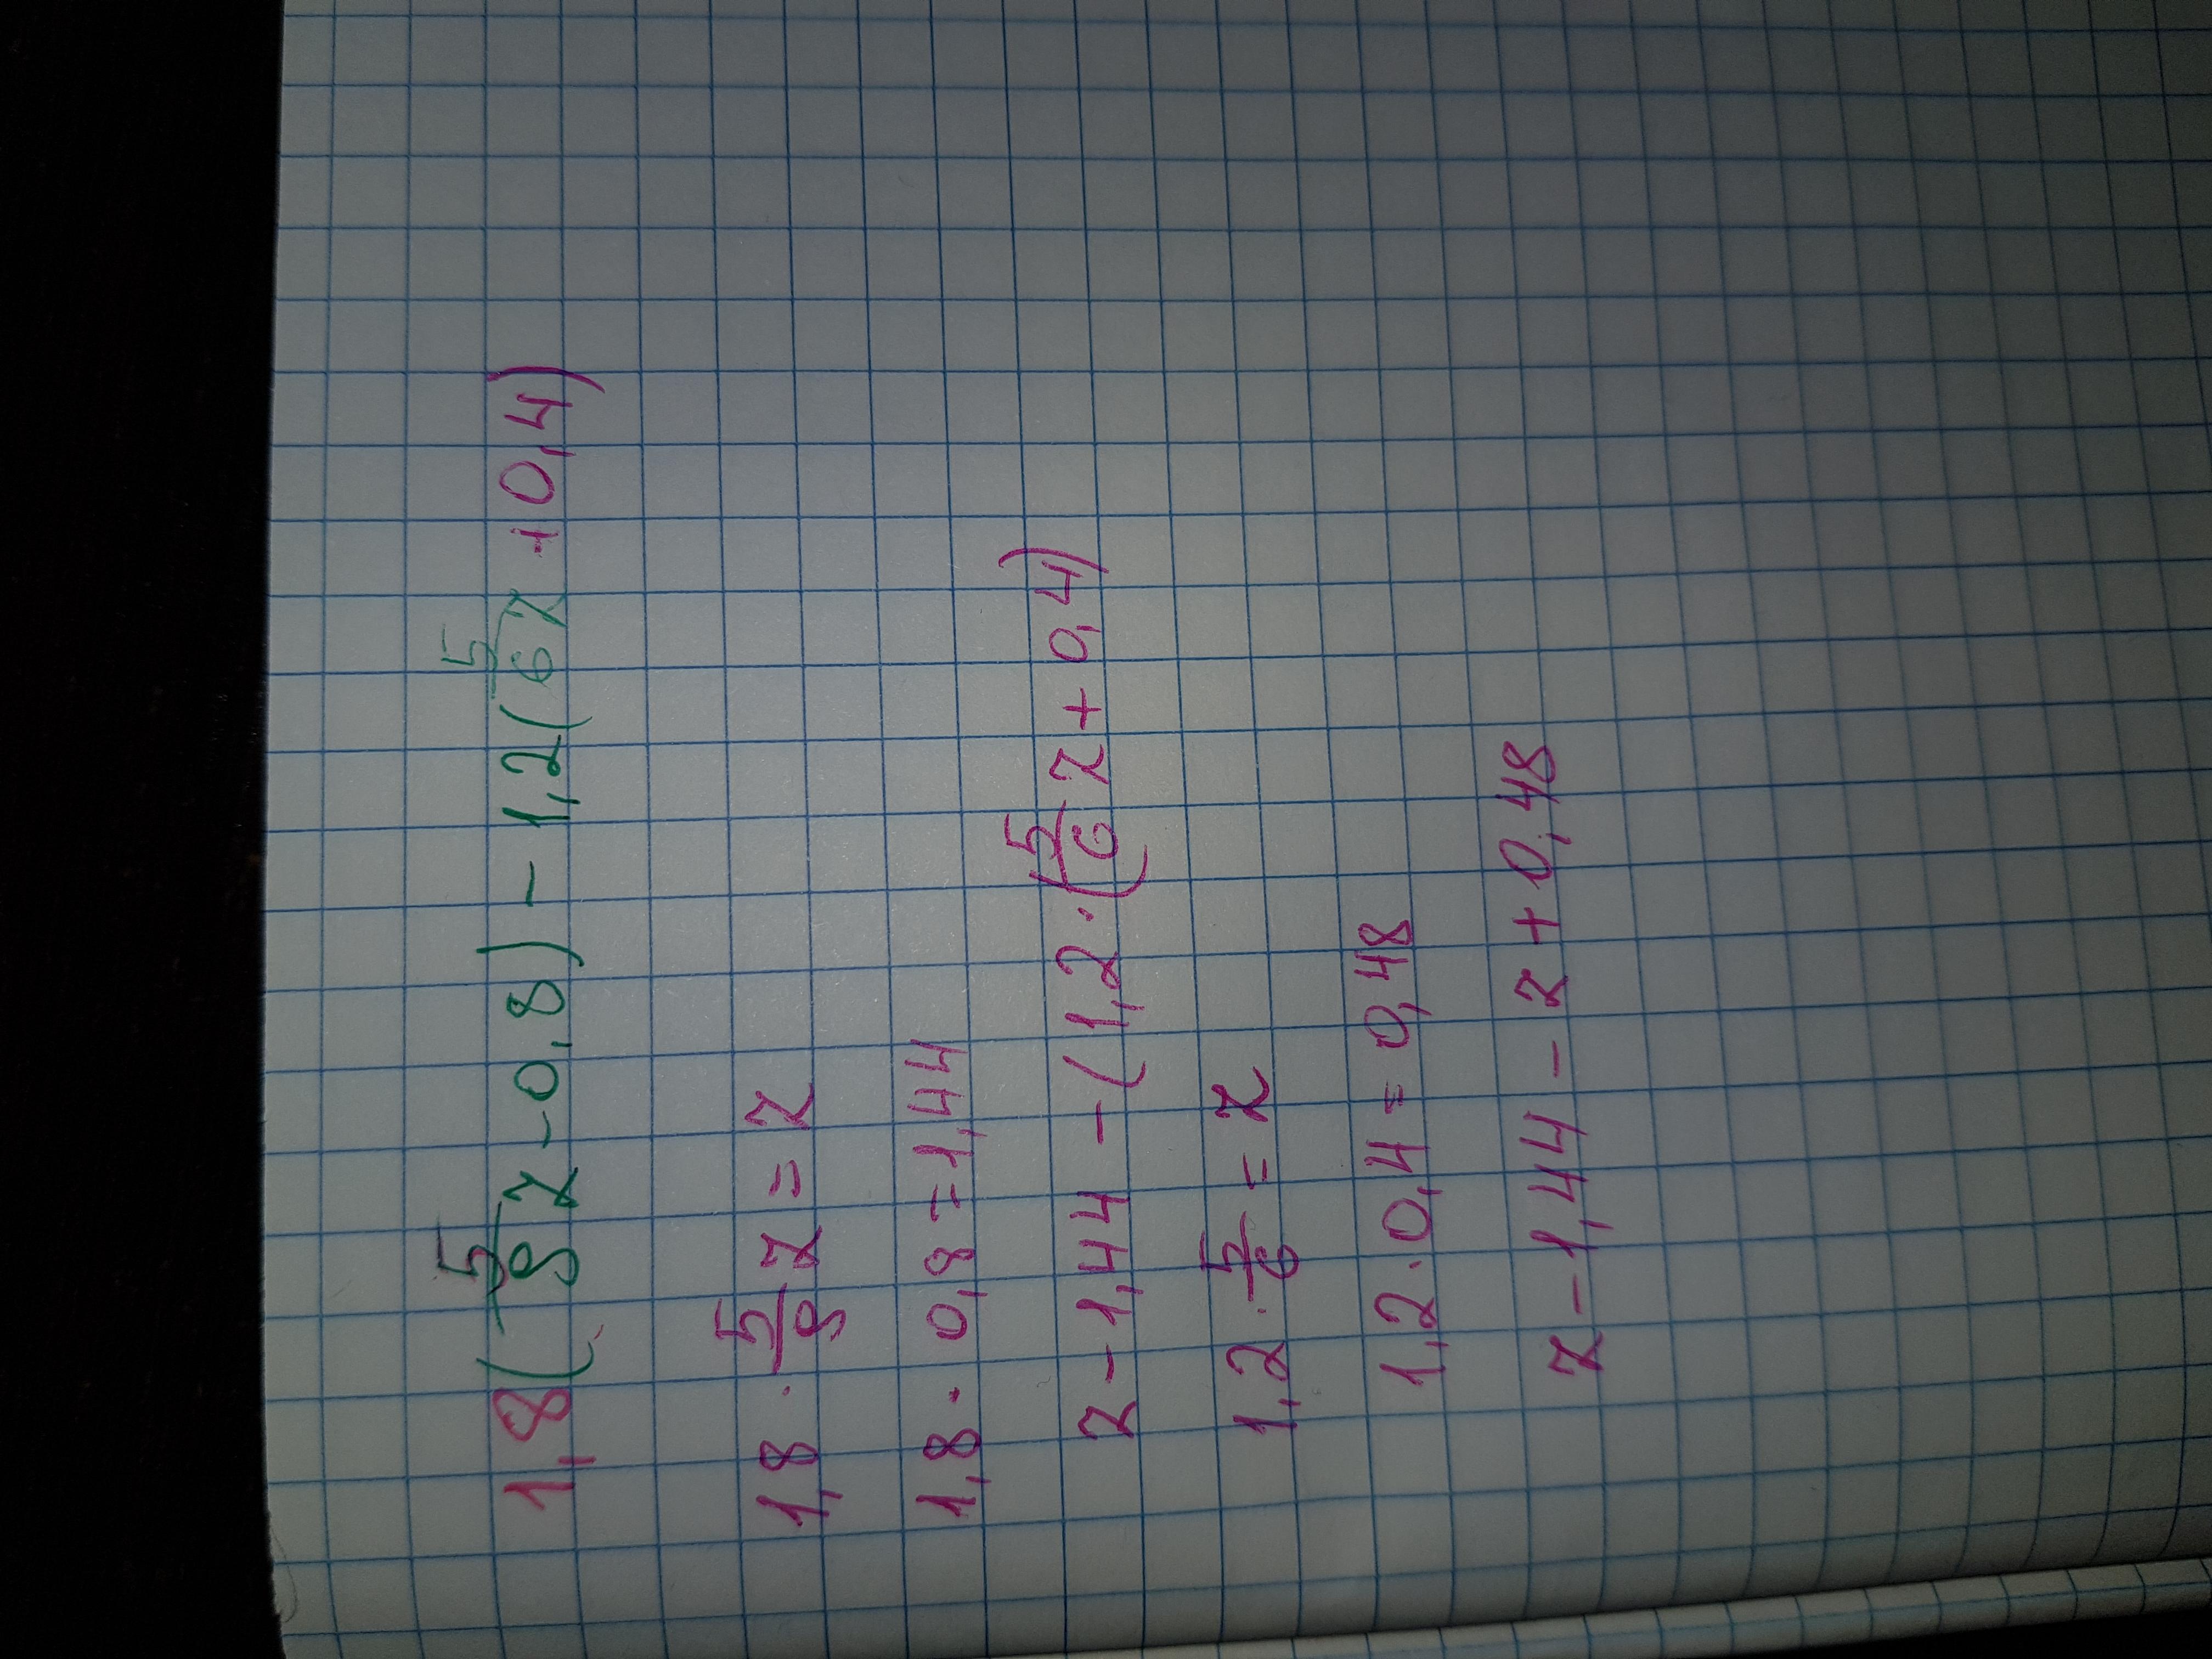 1,8(5/9 x-0,8) - 1,2(5/6 x+0,4)
1,8 · 5/9 x = x
1,8 · 0,8 = 1,44
x - 1,44 - (1,2·(5/6 x + 0,4)
1,2 · 5/6 = x
1,2 · 0,4 = 0,48
x - 1,44 - x + 0,48